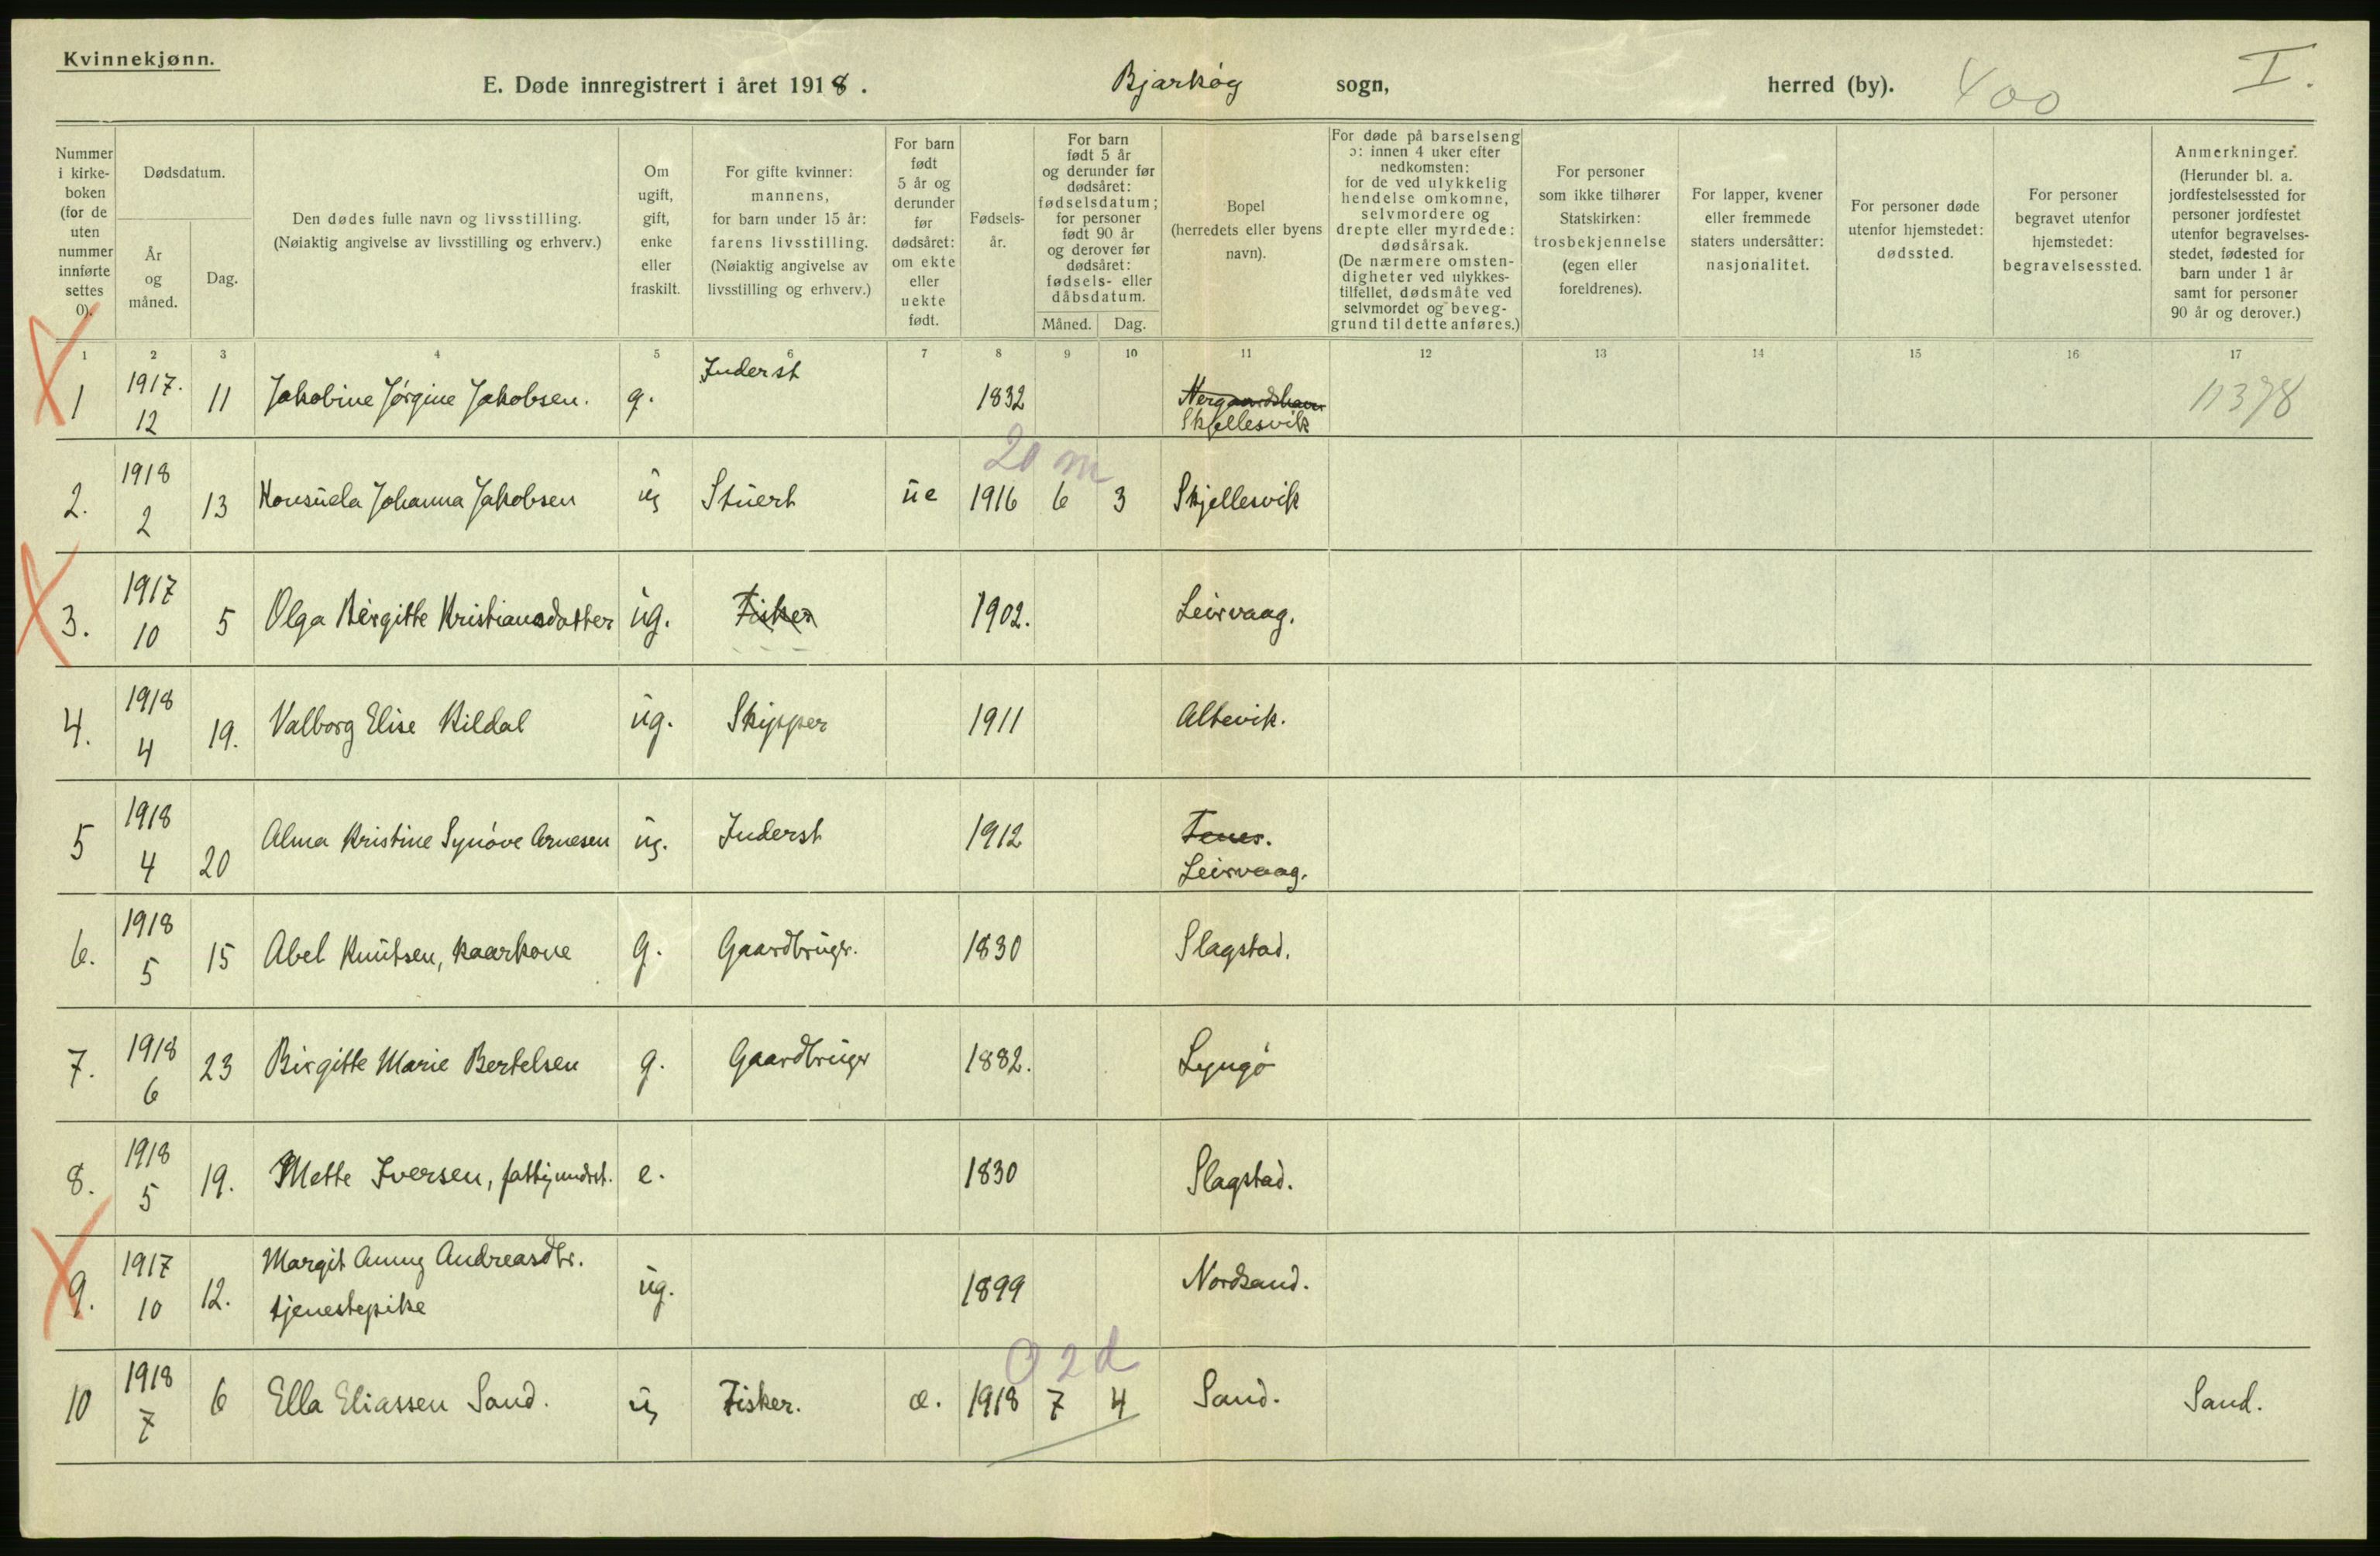 Kvinnekjønn.
E. Døde innregistrert i året 1918. Bjarkøy sogn, herred (by). 400 I.
Nummer i kirke- boken (for de uten nummer innførte settes 0).
Dødsdatum.
År og måned.
Dag.
Den dødes fulle navn og livsstilling.
(Nøiaktig angivelse av livsstilling og erhverv.)
Om ugift, gift, enke eller fraskilt.
For gifte kvinner: mannens, for barn under 15 år: farens livsstilling. (Nøiaktig angivelse av livsstilling og erhverv.)
For barn født 5 år og derunder før dødsåret: om ekte eller uekte født.
Fødsels- år.
For barn født 5 år og derunder før dødsåret: fødselsdatum; for personer født 90 år og derover før dødsåret: fødsels- eller dåbsdatum.
Måned. Dag.
Bopel (herredets eller byens navn).
For døde på barselseng ɔ: innen 4 uker efter nedkomsten: for de ved ulykkelig hendelse omkomne, selvmordere og drepte eller myrdede: dødsårsak. (De nærmere omsten- digheter ved ulykkes- tilfellet, dødsmåte ved selvmordet og beveg- grund til dette anføres.)
For personer som ikke tilhører Statskirken: trosbekjennelse (egen eller foreldrenes).
For lapper, kvener eller fremmede staters undersåtter: nasjonalitet.
For personer døde utenfor hjemstedet: dødssted.
For personer begravet utenfor hjemstedet: begravelsessted.
Anmerkninger. (Herunder bl. a. jordfestelsessted for personer jordfestet utenfor begravelses- stedet, fødested for barn under 1 år samt for personer 90 år og derover.)
1 2 3 4 5 6 7 8 9 10 11 12 13 14 15 16 17
1 1917. 12 11 Jakobine Jørgine Jakobsen. g. Inderst 1832 Skjellesvik 11378
20 m
2. 1918 2 13 Konsuela Johanna Jakobsen ug Stuert ue 1916 6 3 Skjellesvik
3. 1917 10 5 Olga Birgitte Kristiansdatter ug. Fisker 1902. Leirvaag.
4. 1918 4 19. Valborg Elise Kildal ug. Skipper 1911 Altevik.
5 1918 4 20 Alma Kristine Synøve Arnesen ug. Inderst 1912 Fenes. Leirvaag.
6. 1918 5 15 Abel Knutsen, kaarkone g. Gaardbruger. 1830 Slagstad.
7. 1918 6 23 Birgitte Marie Bertelsen g. Gaardbruger 1882. Lyngø
8. 1918 5 19. Mette Iversen, fattigundst. e. 1830 Slagstad.
9. 1917 10 12. Margit Anny Andreasdtr. tjenestepike ug. 1899 Nordsand.
0 2 d
10 1918 7 6 Ella Eliassen Sand. ug Fisker. e. 1918 7 4 Sand. Sand.